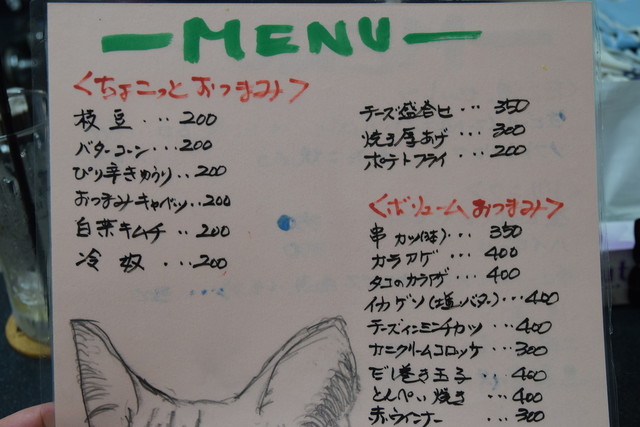 MENU
<ちょこっとおつまみ>
枝豆 ... 200
バターコーン ... 200
ぴり辛きゅうり .. 200
おつまみキャベツ .. 200
白菜キムチ .. 200
冷奴 ... 200
チーズ盛合せ ... 350
焼き厚あげ ... 300
ポテトフライ ... 200
<ボリュームおつまみ>
串カツ(3本) ... 350
カラアゲ ... 400
タコのカラアゲ ... 400
イカゲソ(塩バター) ... 400
チーズインミンチカツ ... 400
カニクリームコロッケ ... 300
だし巻き玉子 ... 400
とんぺい焼き ... 400
赤ウインナー ... 300